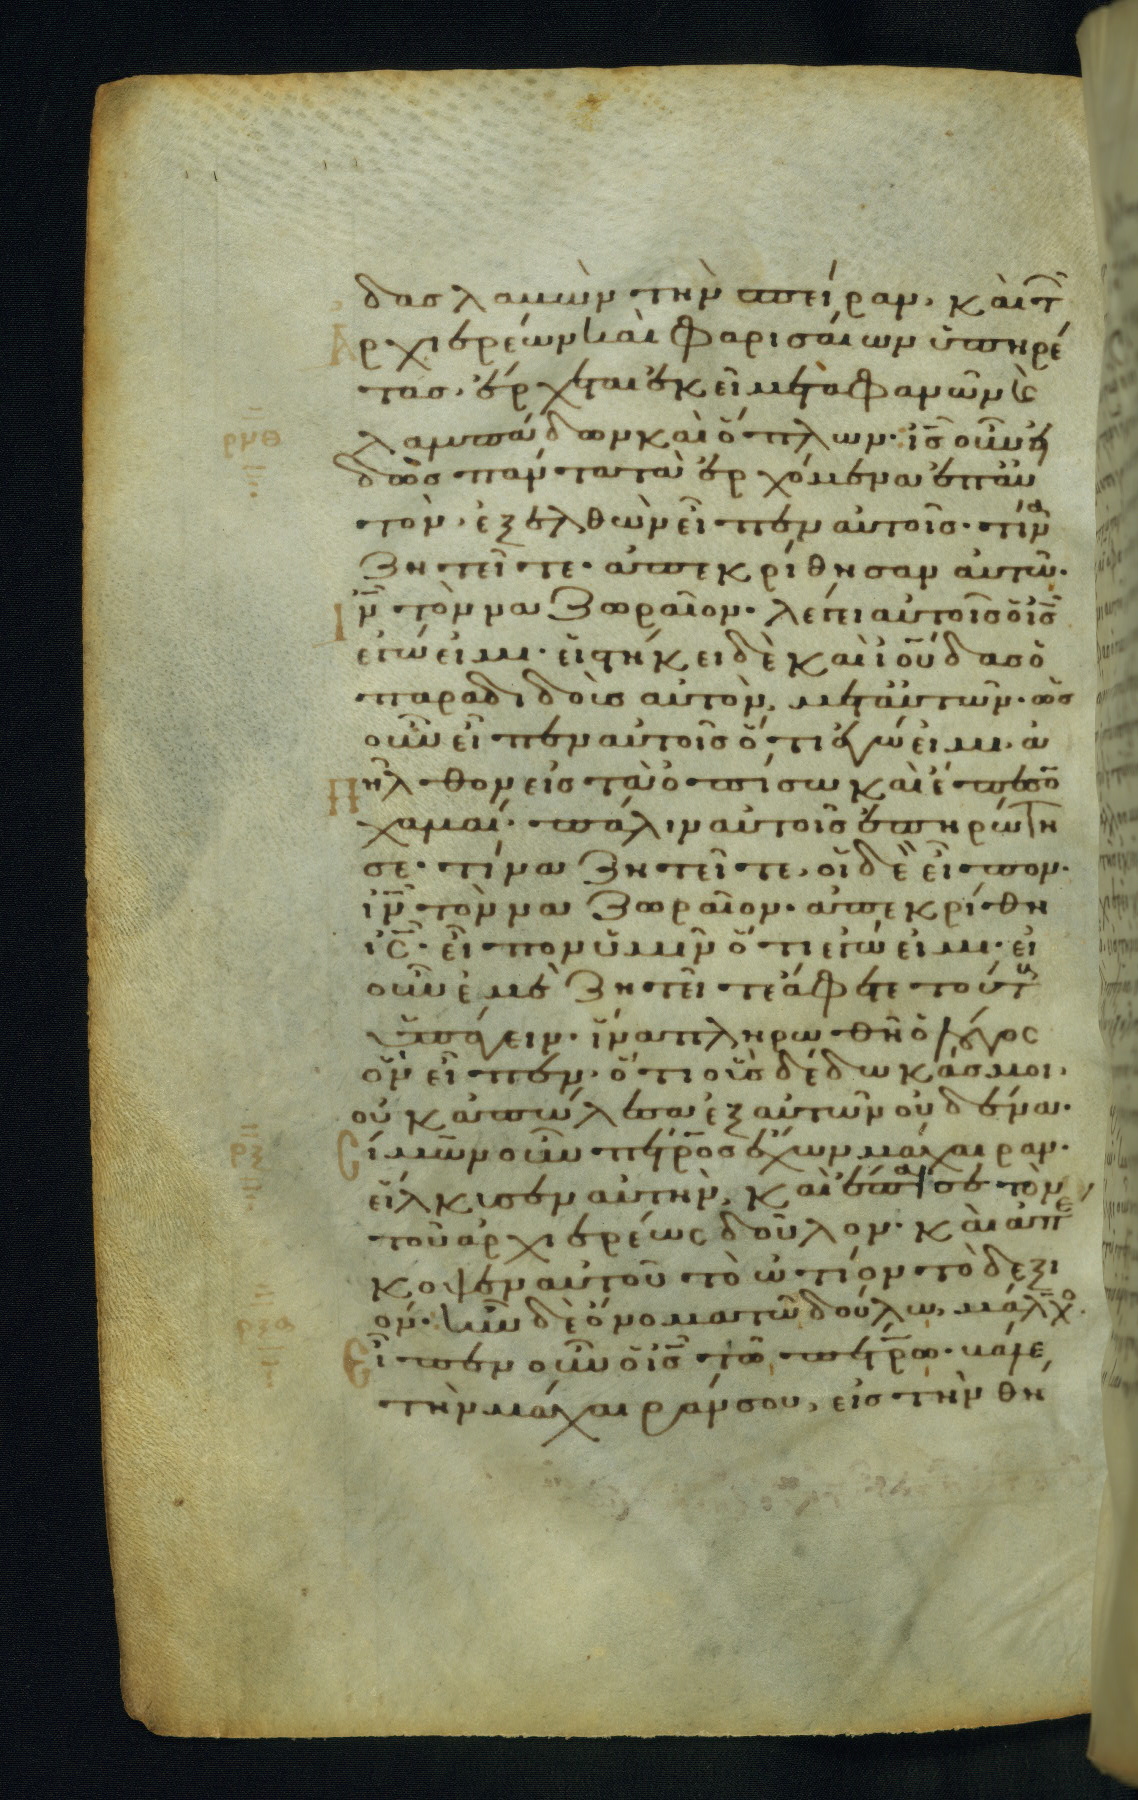 δας λαμὼν τὴν σπεῖραν. κὰι τ̅
ἀρχιερέων καὶ Φαρισαίων ὑπηρέ
τας. ἔρχεται ἐκεῖ μετὰ φανῶν κ̀
λαμπάδων καὶ ὅπλων. ι̅ς̅ οὖν εἰ
δὼς πάντα τὰ ἐρχόμενα ἐπ' αὐ
τὸν. ἐξελθὼν εἶπεν αὐτοῖς. τίνα
ζητεῖτε. ἀπεκρίθησαν αὐτῶ.
ι̅ν̅ τὸν ναζωραῖον. λέγει αὐτοῖς ὁ ι̅ς̅
ἐγώ εἰμι. εἱστήκει δὲ καὶ ἰούδας ὁ
παραδιδοὺς αὐτὸν, μετ' αὐτῶν. ὡς
οὖν εἶπεν αὐτοῖς ὅτι ἐγώ εἰμι. ἀ
πῆλθον εἰς τὰ ὀπίσω καὶ ἔπεσο
χαμαί. πάλιν αὐτοῖς ἐπηρώτη
σε. τίνα ζητεῖτε. οἱ δὲ εἶπον.
ι̅ν̅ τὸν ναζωραῖον. ἀπεκρίθη
ι̅ς̅. εἶπον ὑμῖν ὅτι ἐγώ εἰμι. εἰ
οὖν ἐμὲ ζητεῖτε ἄφετε τούτους
ὑπάγειν. ἵνα πληρωθῆ ὁ λόγος
ὃν εἶπεν. ὅτι οὓς δέδωκάς μοι.
οὐκ ἀπώλεσα ἐξ αὐτῶν οὐδένα.
Σίμων οὖν πέτρος ἔχων μάχαιραν.
εἵλκυσεν αὐτὴν. καὶ ἔπαισε τὸν
τοῦ ἀρχιερέως δοῦλον. κὰι ἀπέ
κοψεν αὐτοῦ τὸ ὠτίον τὸ δεξι
όν. ἦν δὲ ὄνομα τῶ δούλω, μάλχο.
Εἶπεν οὖν ὁ ι̅ς̅ τῶ πέτρω. βάλε
τὴν μάχαιράν σου, εἰς τὴν θή